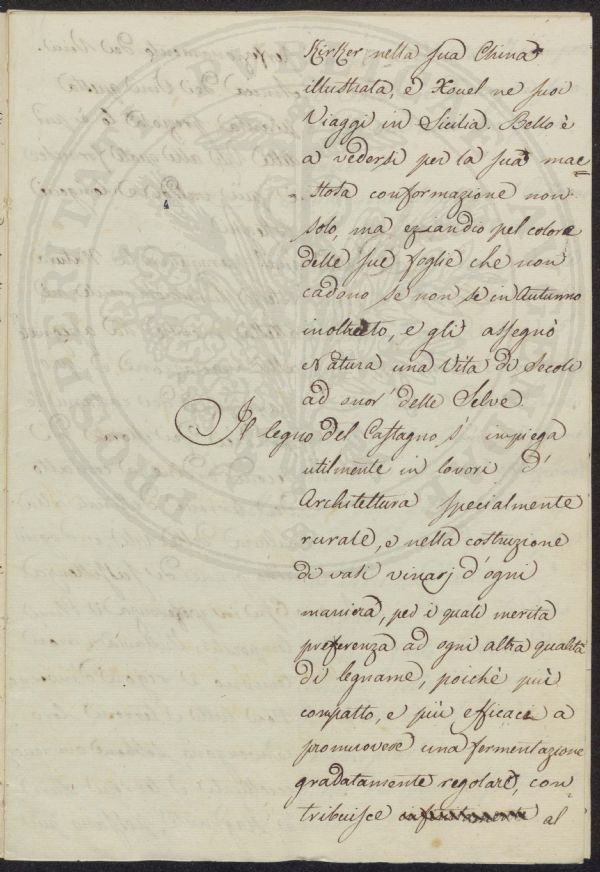 Kirker nella sua China
illustrata, e Houel ne suoi
Viaggi in Sicilia. Bello è
a vedersi per la sua mae=
stosa conformazione non
solo, ma eziandio pel colore
delle sue foglie che non
cadono se non se in Autunno
inoltrato, e gli assegnò
Natura una Vita di Secoli
ad onor' delle Selve.
Il legno del Castagno s' impiega
utilmente in lavori d'
Architettura specialmente
rurale, e nella costruzione
di vasi vinarj d'ogni
maniera, per i quali merita
preferenza ad ogni altra qualità
di legname, poichè più
compatto, e più efficace a
promuovere una fermentazione
gradatamente regolare, con=
tribuisce al